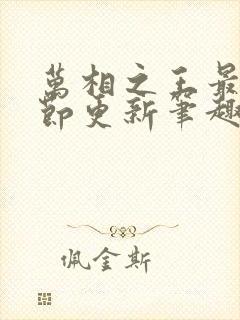 萬相之王最
節更新筆趣
佩金斯